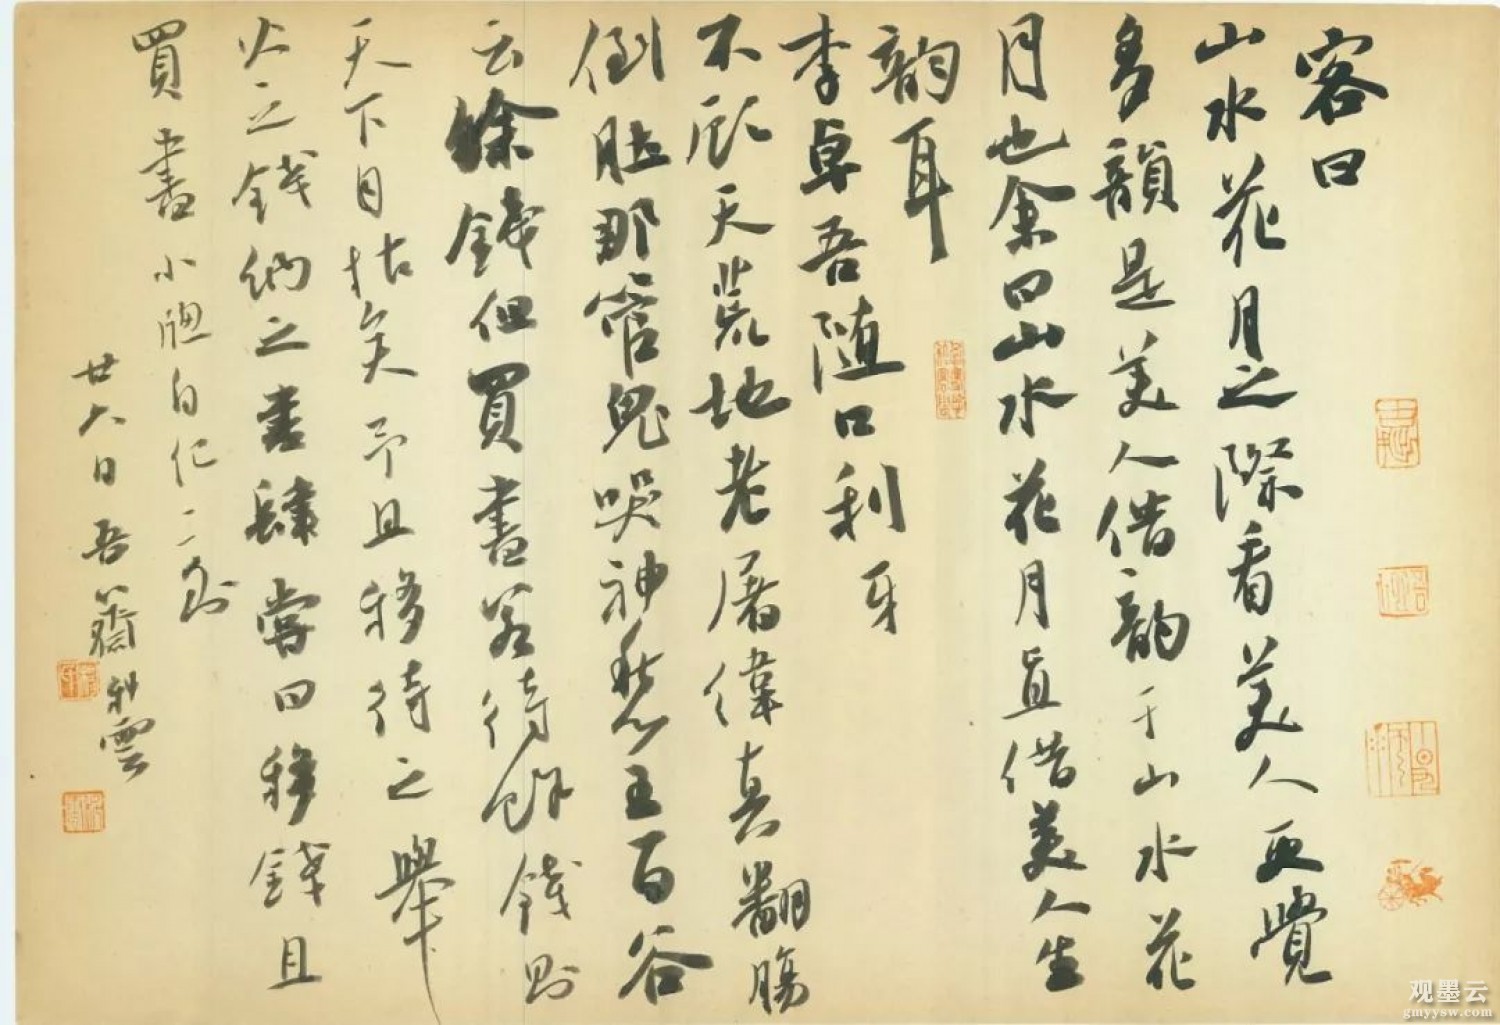 客曰
山水花月之際看美人更覺
多韻是美人借韵于山水花
月也余曰山水花月直借美人生
韵耳
李卓吾随口利牙
不顾天荒地老屠緯真翻腸
倒肚那管鬼哭神愁王百谷
云餘錢但買書若待餘錢則
天下目枯矣予且移待之舉
火之錢納之書肆嘗曰移錢且
買書 小牎自紀二則
廿六日吾 雲
观墨云
gmyysw.com